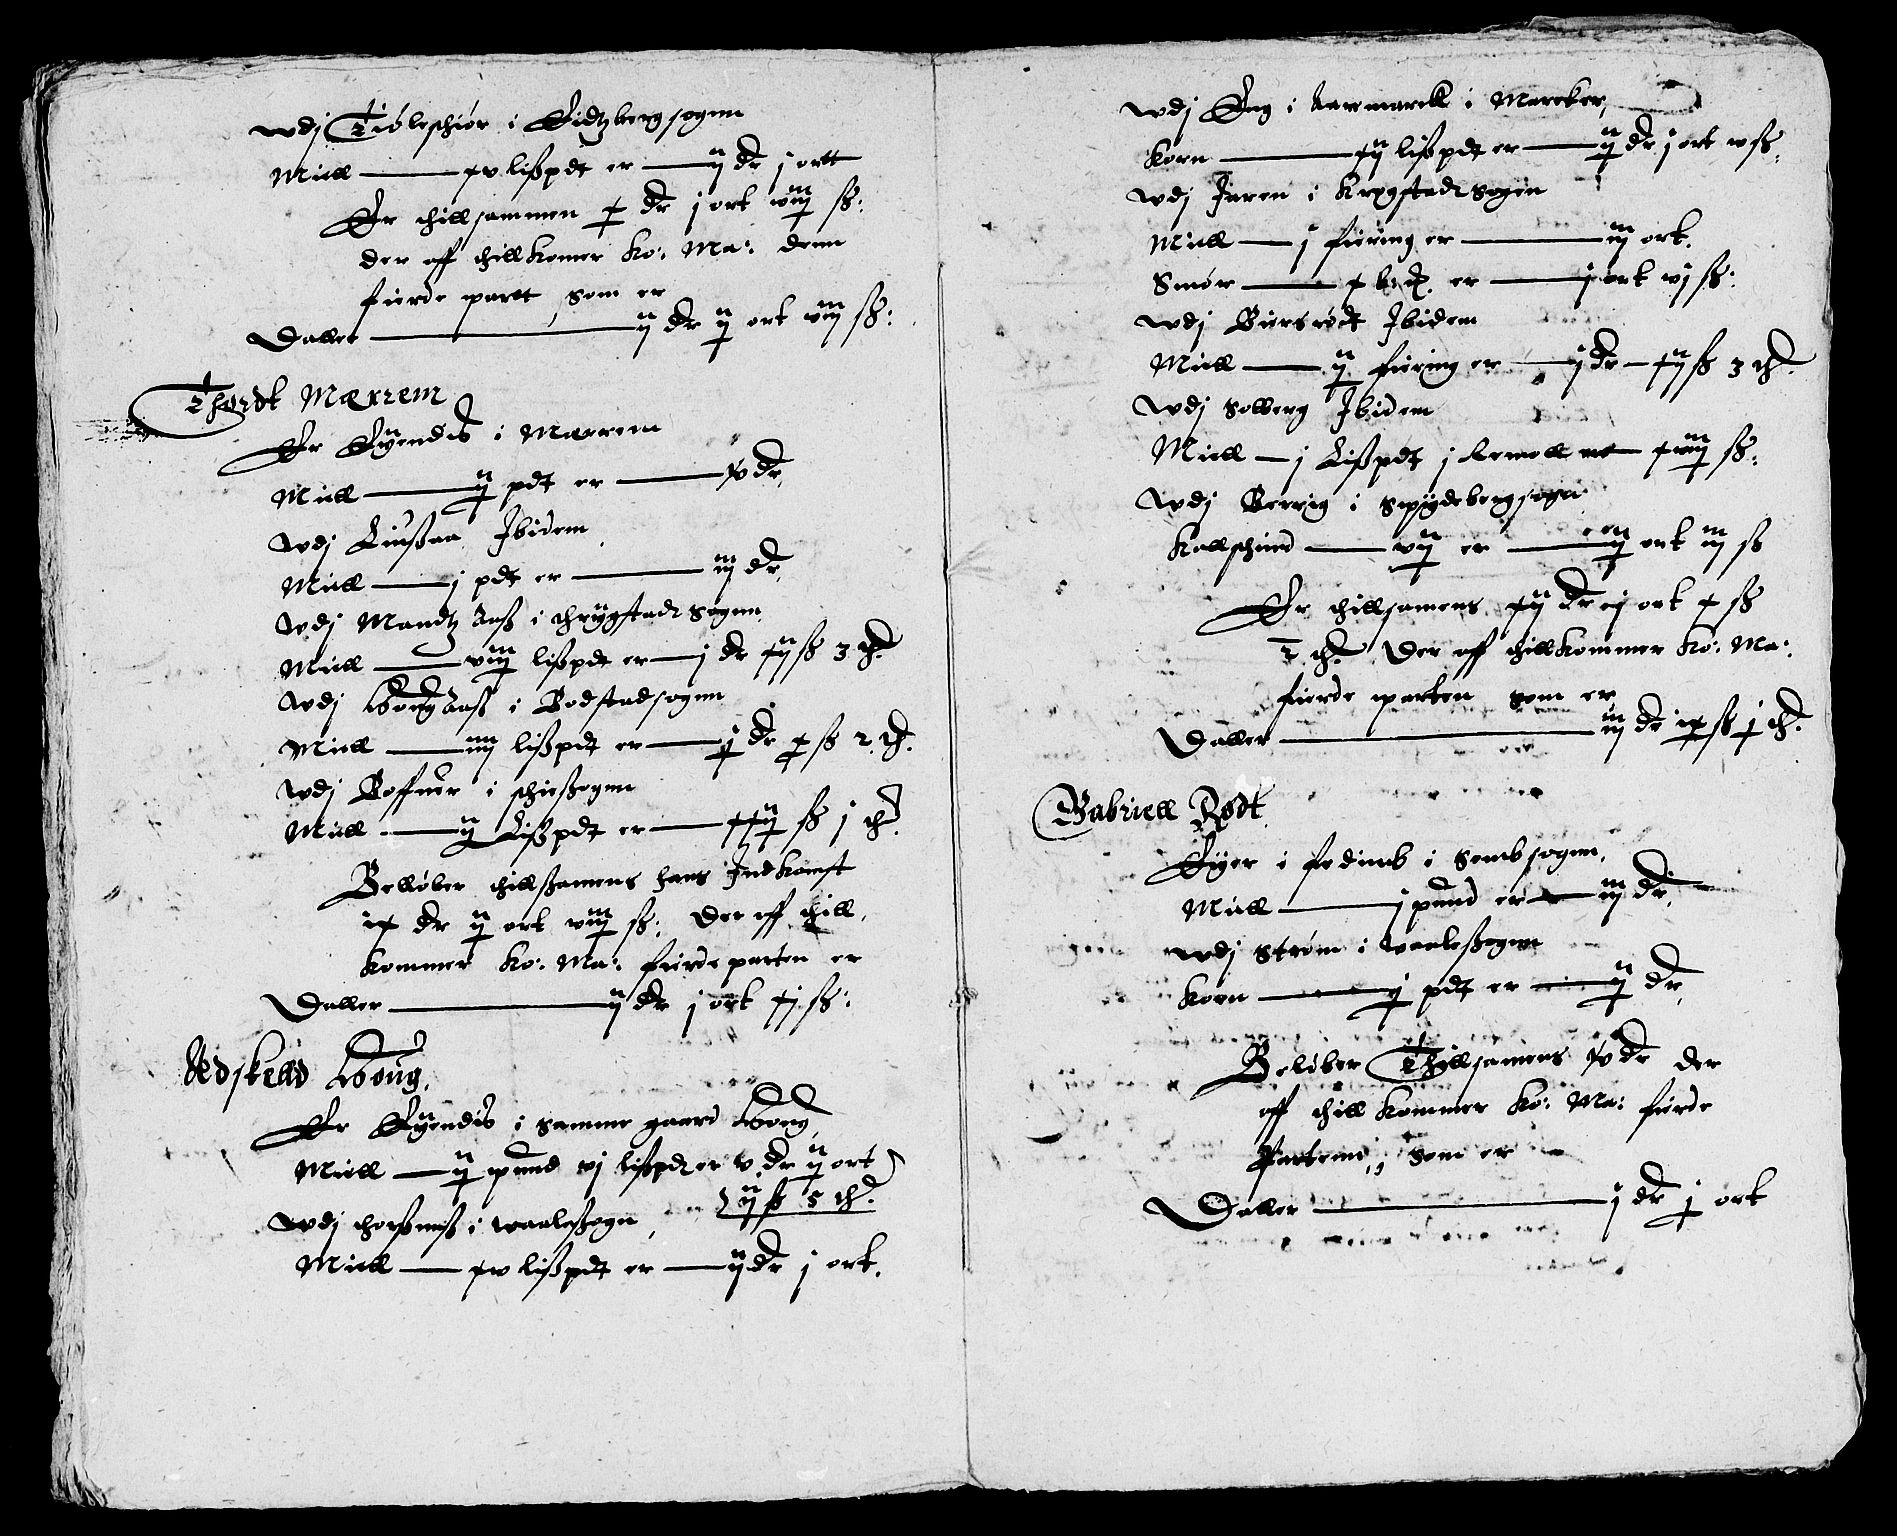 wdj Tiøleschiør i Eidtzbergsognn
Miell — xv lißpdt er — ij dr j ortt
Er thillsammen x dr j ort viij sß:
der aff thillkomer Ko: Ma: denn
fierde partt, som er
Daller — ij dr ij ort viij sß:
Thordt Mærrem
Er Eÿendis i Mærrem
Miell — ij pdt er — xv dr,
wdj Ibidem
Miell — j pdt er — iij dr,
wdj Mandtz Aaß i thrÿgstad Sognn
Miell — viij lißpdt er — j dr xij sß 3 ₰.
wdj Houg Aaß i Rodstadsognn
Miell — iiij lißpdt er — ½ dr x sß 2 ₰.
wdj i schießognn
Miell — ij Lißpdt er — xxij sß j ₰.
Belløber thillsamens hans Indkomst
ix dr ij ort viij sß: Der aff thill
kommer Ko: Ma: fierde parten er
Daller — ij dr j ort xj sß:
Houg,
Er Eÿendis i samme gaard Houg,
Miell — ij pund vj lißpd er v dr ij ort
ij sß 5 ₰.
wdj i waaleßogn,
Miell — xv lißpdt er — ij dr j ort.
wdj Eng i Aarmarck i Marcker,
Korn — xij lißpdt er — ij dr j ort v sß:
wdj Jaren i Krÿgstad Sogen
Miell — j fiering er — iij ort.
Smør — er — j ort vj sß:
wdj Biersrødt Ibidem
Miell — ij fiering er — j dr — xij sß 3 ₰.
wdj Solberg Ibidem
Miell — j Lißpdt j er — xviij sß:
wdj Berrig i Spÿdebergsogn
Kallschind — vij er — ij ort iij sß
Er thillsamens xij dr j ort x sß
₰ Der aff thillkommer Ko: Ma:
fierde parten som er
Daller — iij dr ix sß ½ ₰.
Gabriell Rødt.
Eÿer i i Sembsognn,
Miell — j pund er — iij dr,
wdj Strøm i waaleßognn
Korn — j pdt er — ij dr,
Beløber Thillsamens xv dr der
aff thill kommer Ko: Ma: fierde
Partenn, som er
Daller — j dr j ort